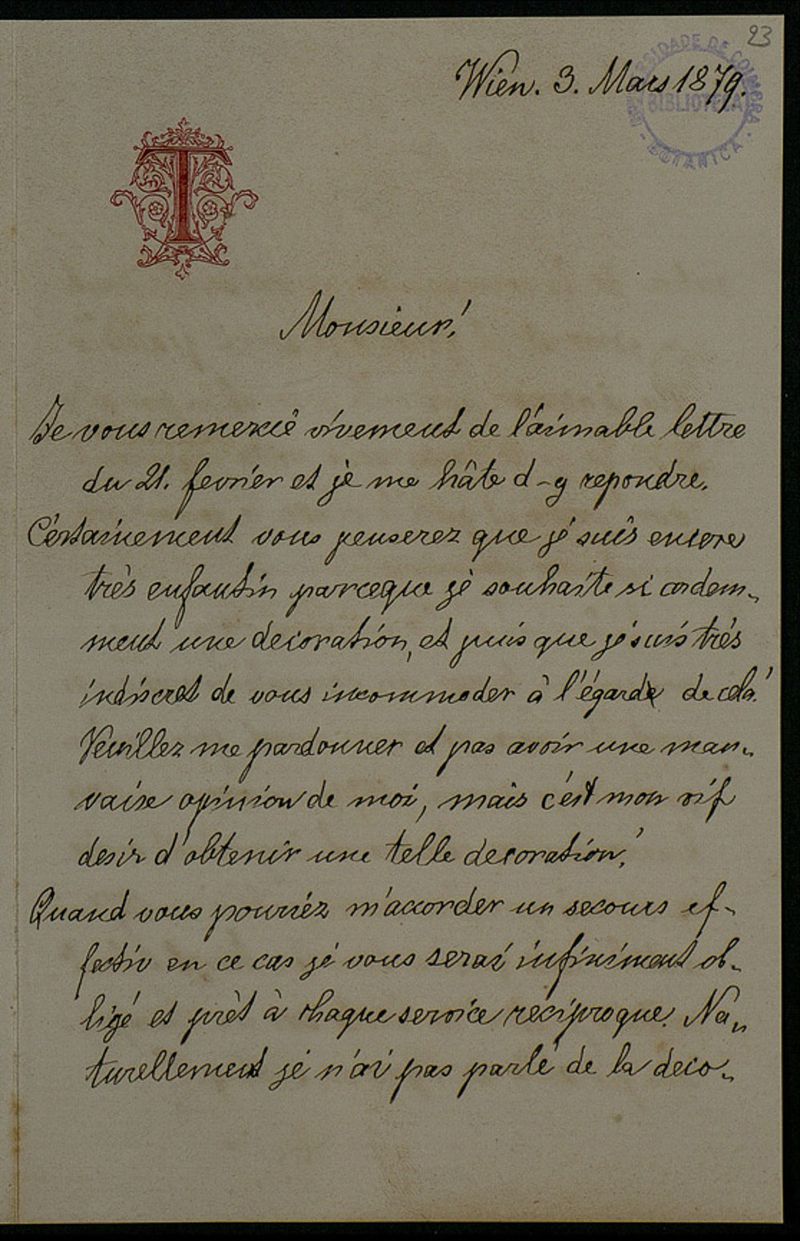 23
Wien. 3. Mars 1879.
UNIVERSIDADE DE COIMBRA
BIBLIOTECA
BOTANICA
T
Monsieur!
Je vous remercie vivement de l'aimable lettre
du 21. fevrier et je me hâte d-y repondre.
Certainement vous penserez que je suis encore
très enfantin parceque je souhaite si ardem-
ment une decoration, et puis que je suis très
indiscret de vous incommoder à l'égard de cela!
Veuillez me pardonner et pas avoir une mau-
vaise opinion de moi, mais c'est mon vif
desir d'obtenir une telle decoration!
Quand vous pourriez m'accorder un secours ef-
fectiv en ce cas je vous serai infiniment ob-
ligé et prèt à chaque service reciproque. Na-
turellement je n'ai pas parlé de la deco-